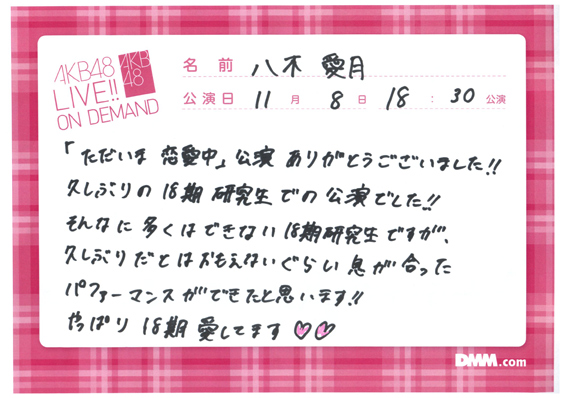 AKB48
LIVE!!
ON DEMAND
AKB
48
名前 八木 愛月
公演日 11月 8日 18:30公演
「ただいま 恋愛中」公演 ありがとうございました!!
久しぶりの 18期 研究生 での 公演でした!!
そんなに 多くは できない 18期研究生 ですが、
久しぶり だとは おもえないぐらい 息が 合った
パフォーマンス ができたと思います!!
やっぱり 18期 愛してます♡♡
DMM.com